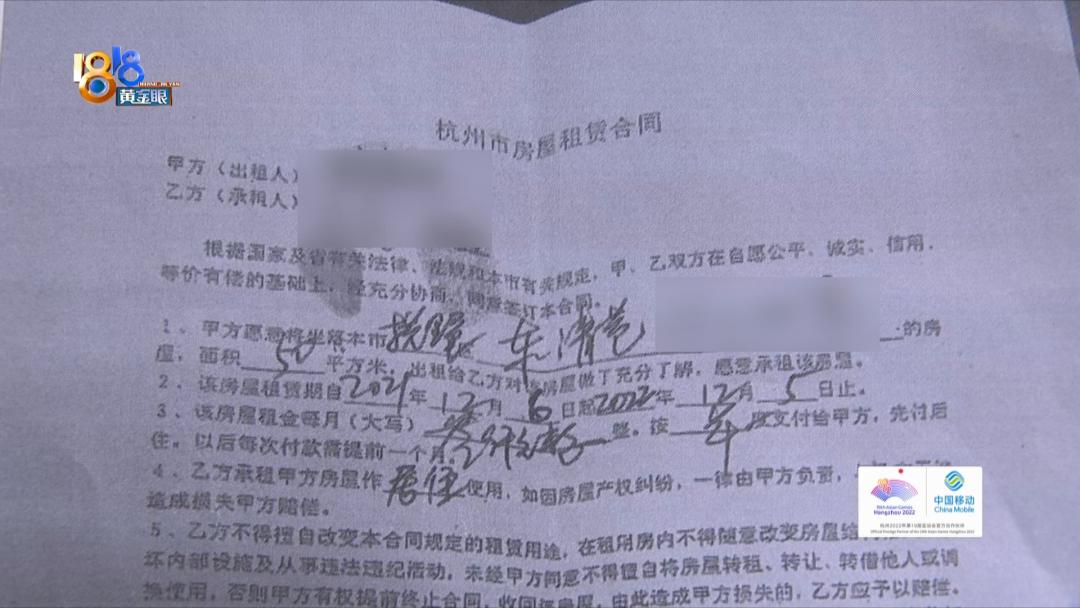 1818
HUANG JIN YAN
黄金眼
杭州市房屋租赁合同
甲方（出租人）
乙方（承租人）
根据国家及省有关法律、法规和本市有关规定，甲、乙双方在自愿公平、诚实、信用、
等价有偿的基础上，经充分协商，同意签订本合同。
1、甲方愿意将坐落本市拱墅区东清巷的房
屋，面积50平方米，出租给乙方对该房屋做了充分了解，愿意承租该房屋。
2、该房屋租赁期自2021年12月6日起2022年12月5日止。
3、该房屋租金每月（大写）整。按年度支付给甲方，先付后
住。以后每次付款需提前一个月
4、乙方承租甲方房屋作居住使用，如因房屋产权纠纷，一律由甲方负责，
造成损失甲方赔偿。
5、乙方不得擅自改变本合同规定的租赁用途，在租用房内不得随意改变房屋结
坏内部设施及从事违法违纪活动，未经甲方同意不得擅自将房屋转租、转让、转借他人或调
换使用，否则甲方有权提前终止合同，收回该房屋，由此造成甲方损失的，乙方应予以赔偿。
19th Asian Games
Hangzhou 2022
中国移动
China Mobile
杭州2022年第19届亚运会官方合作伙伴
Official Prestige Partner of the 19th Asian Games Hangzhou 2022